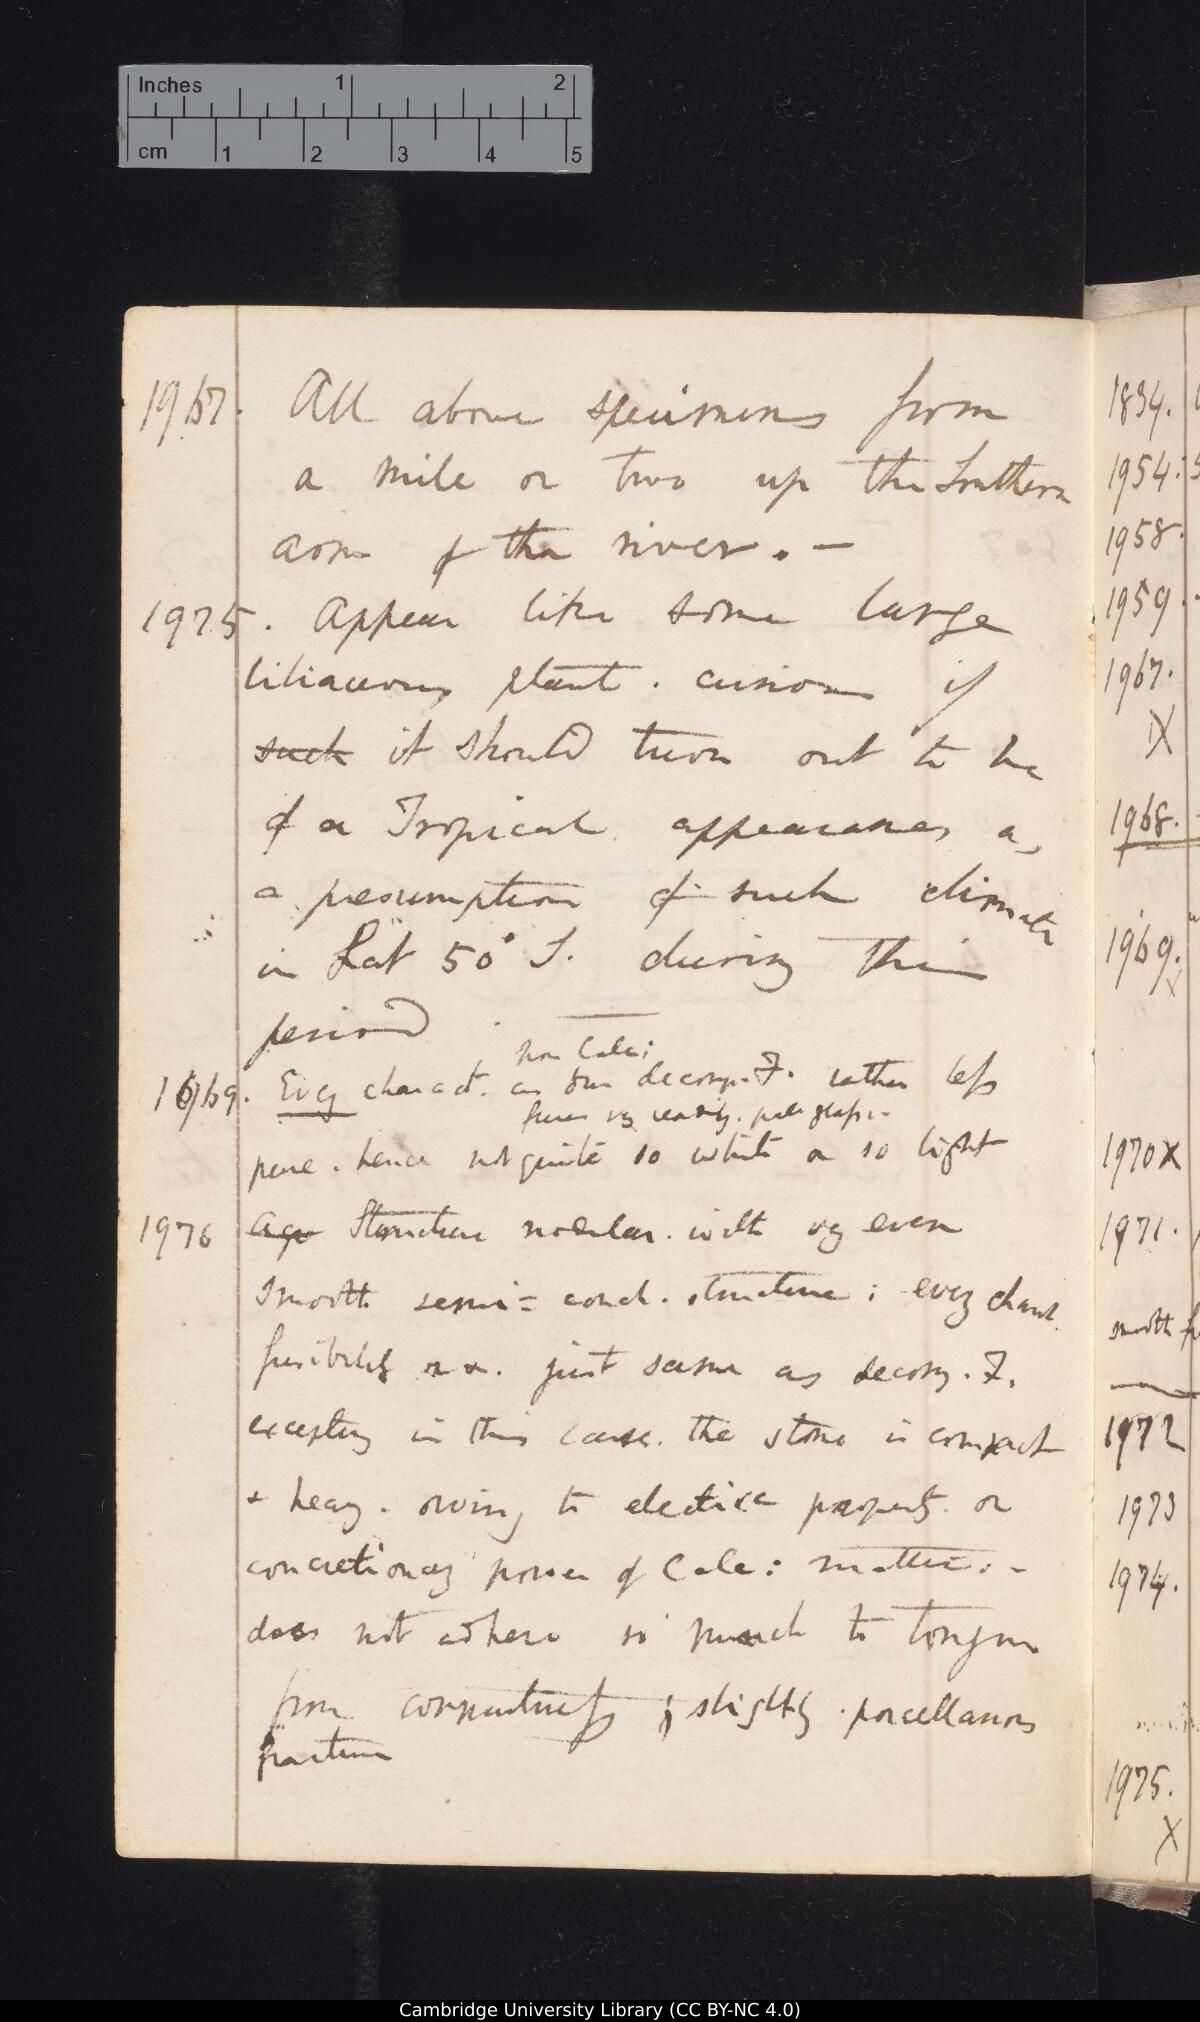 Inches 1 2
cm 1 2 3 4 5
1967. All above specimens from
a mile or two up the Southern
arm of the river. —
1975. Appear like some large
liliaceous plant. curious if
such it should turn out to be
of a Tropical appearances as
a presumption of such climate
in Lat 50° S. during this
period
non Calc:
1969. Evey charact. as true decomp. F. rather less
fuses vy readily. pale glass.-
pure. hence not quite so white or so light
1976 Structure nodular. with vy even
smooth semi = conch. structure; evey charact.
fusibility &c. just same as decomp. F.
excepting in this case. the stone is compact
& heavy. owing to elective property. or
concretionary power of Calc: matter: -
does not adhere so much to tongue
from compactness; slightly porcellanous
fracture
1834.
1954.
1958.
1959.
1967.
X
1968.
1969.
1970 X
1971.
smooth
1972
1973
1974.
1975.
X
Cambridge University Library (CC BY-NC 4.0)